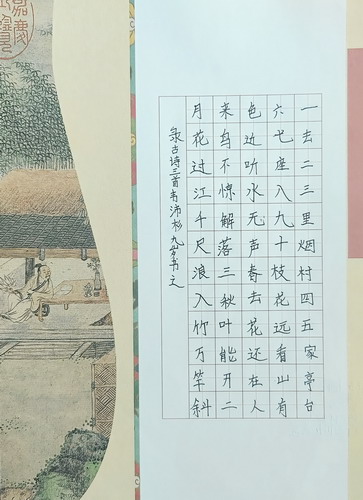 一去二三里烟村四五家亭台
六七座八九十枝花远看山有
色近听水无声春去花还在人
来鸟不惊解落三秋叶能开二
月花过江千尺浪入竹万竿斜
录古诗三首韦沛杉九岁书之